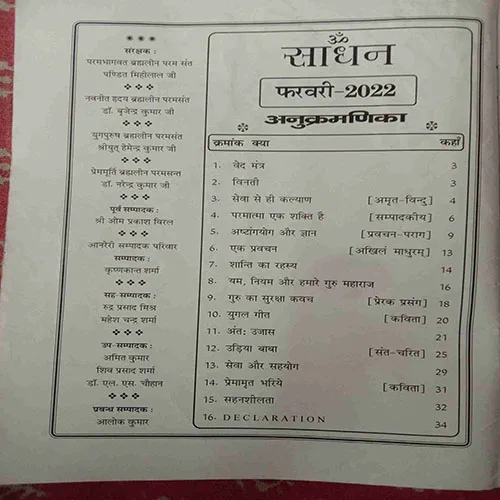 संरक्षक :
परमभागवत ब्रह्मलीन परम संत
पण्डित मिहीलाल जी
नवनीत हृदय ब्रह्मलीन परमसंत
डॉ. बृजेन्द्र कुमार जी
युगपुरुष ब्रह्मलीन परमसंत
श्रीयुत् हेमेन्द्र कुमार जी
प्रेममूर्ति ब्रह्मलीन परमसन्त
डॉ. नरेन्द्र कुमार जी
पूर्व सम्पादक :
श्री ओम प्रकाश विरल
आनरेरी सम्पादक परिवार
सम्पादक :
कृष्णकान्त शर्मा
सह-सम्पादक :
रुद्र प्रसाद मिश्र
महेश चन्द्र शर्मा
उप-सम्पादक :
अमित कुमार
शिव प्रसाद शर्मा
डॉ. एल. एस. चौहान
प्रबन्ध सम्पादक :
आलोक कुमार
ॐ
साधन
फरवरी-2022
अनुक्रमणिका
क्रमांक क्या कहाँ
1. वेद मंत्र 3
2. विनती 3
3. सेवा से ही कल्याण [अमृत-विन्दु] 4
4. परमात्मा एक शक्ति है [सम्पादकीय] 6
5. अष्टांगयोग और ज्ञान [प्रवचन-पराग] 9
6. एक प्रवचन [अखिलं माधुरम्] 13
7. शान्ति का रहस्य 14
8. यम, नियम और हमारे गुरु महाराज 16
9. गुरु का सुरक्षा कवच [प्रेरक प्रसंग] 18
10. युगल गीत [कविता] 20
11. अंतः उजास 21
12. उड़िया बाबा [संत-चरित] 25
13. सेवा और सहयोग 29
14. प्रेमामृत भरिये [कविता] 31
15. सहनशीलता 32
16. DECLARATION 34